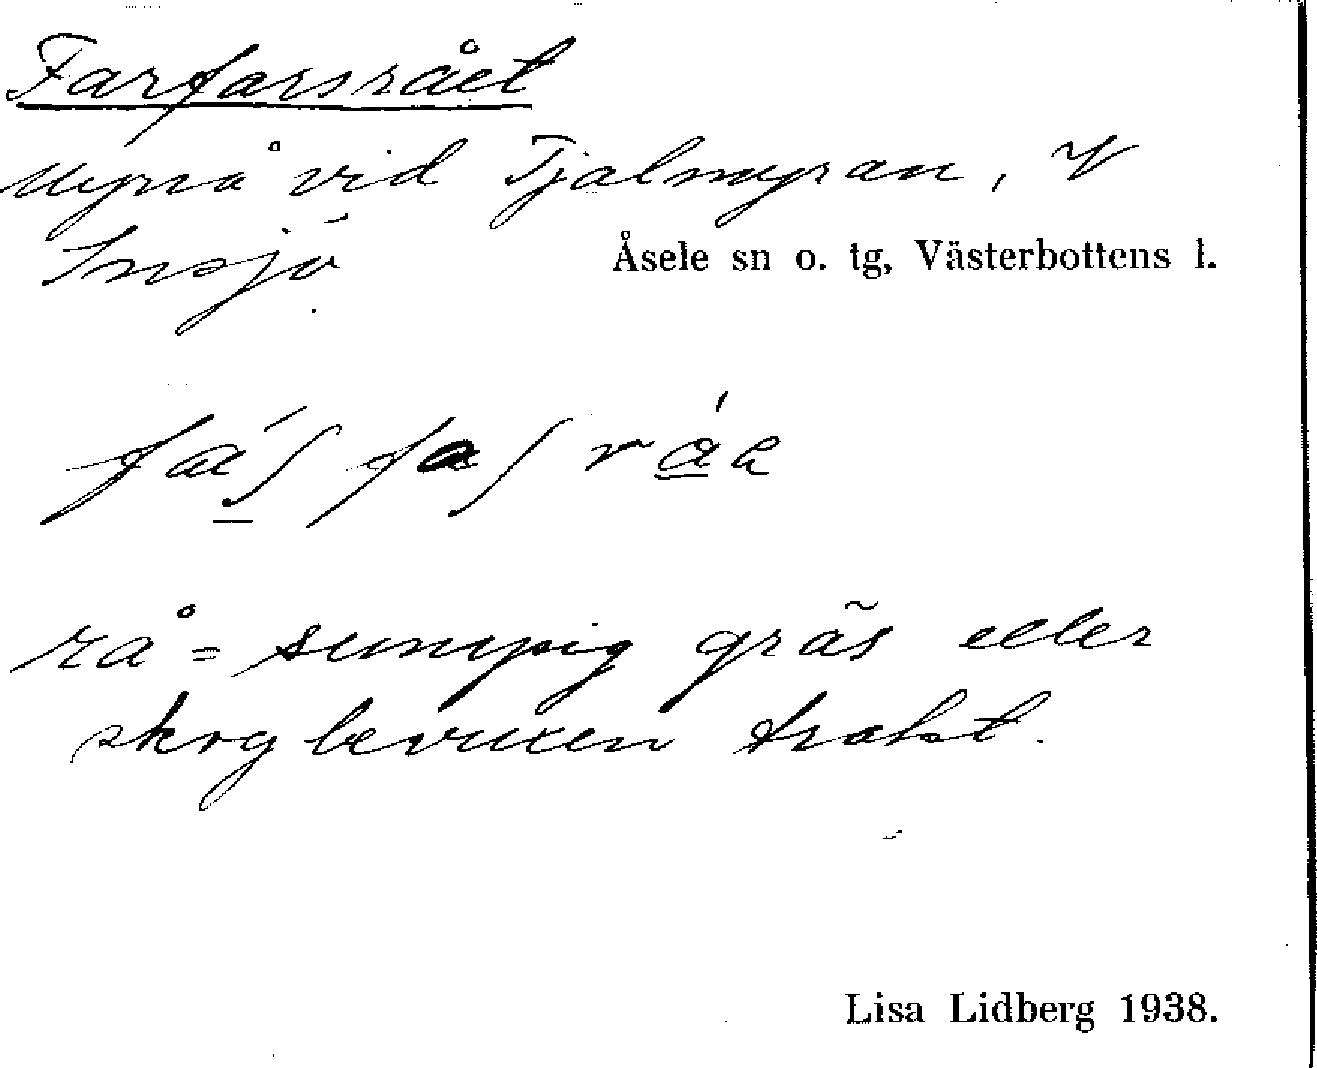 Farfarsrået
Myrrå vid Tjalmyran, V
Insjö
Åsele sn o. tg, Västerbottens l.
rå = sumpig gräs eller
skogbevuxen trakt.
Lisa Lidberg 1938.